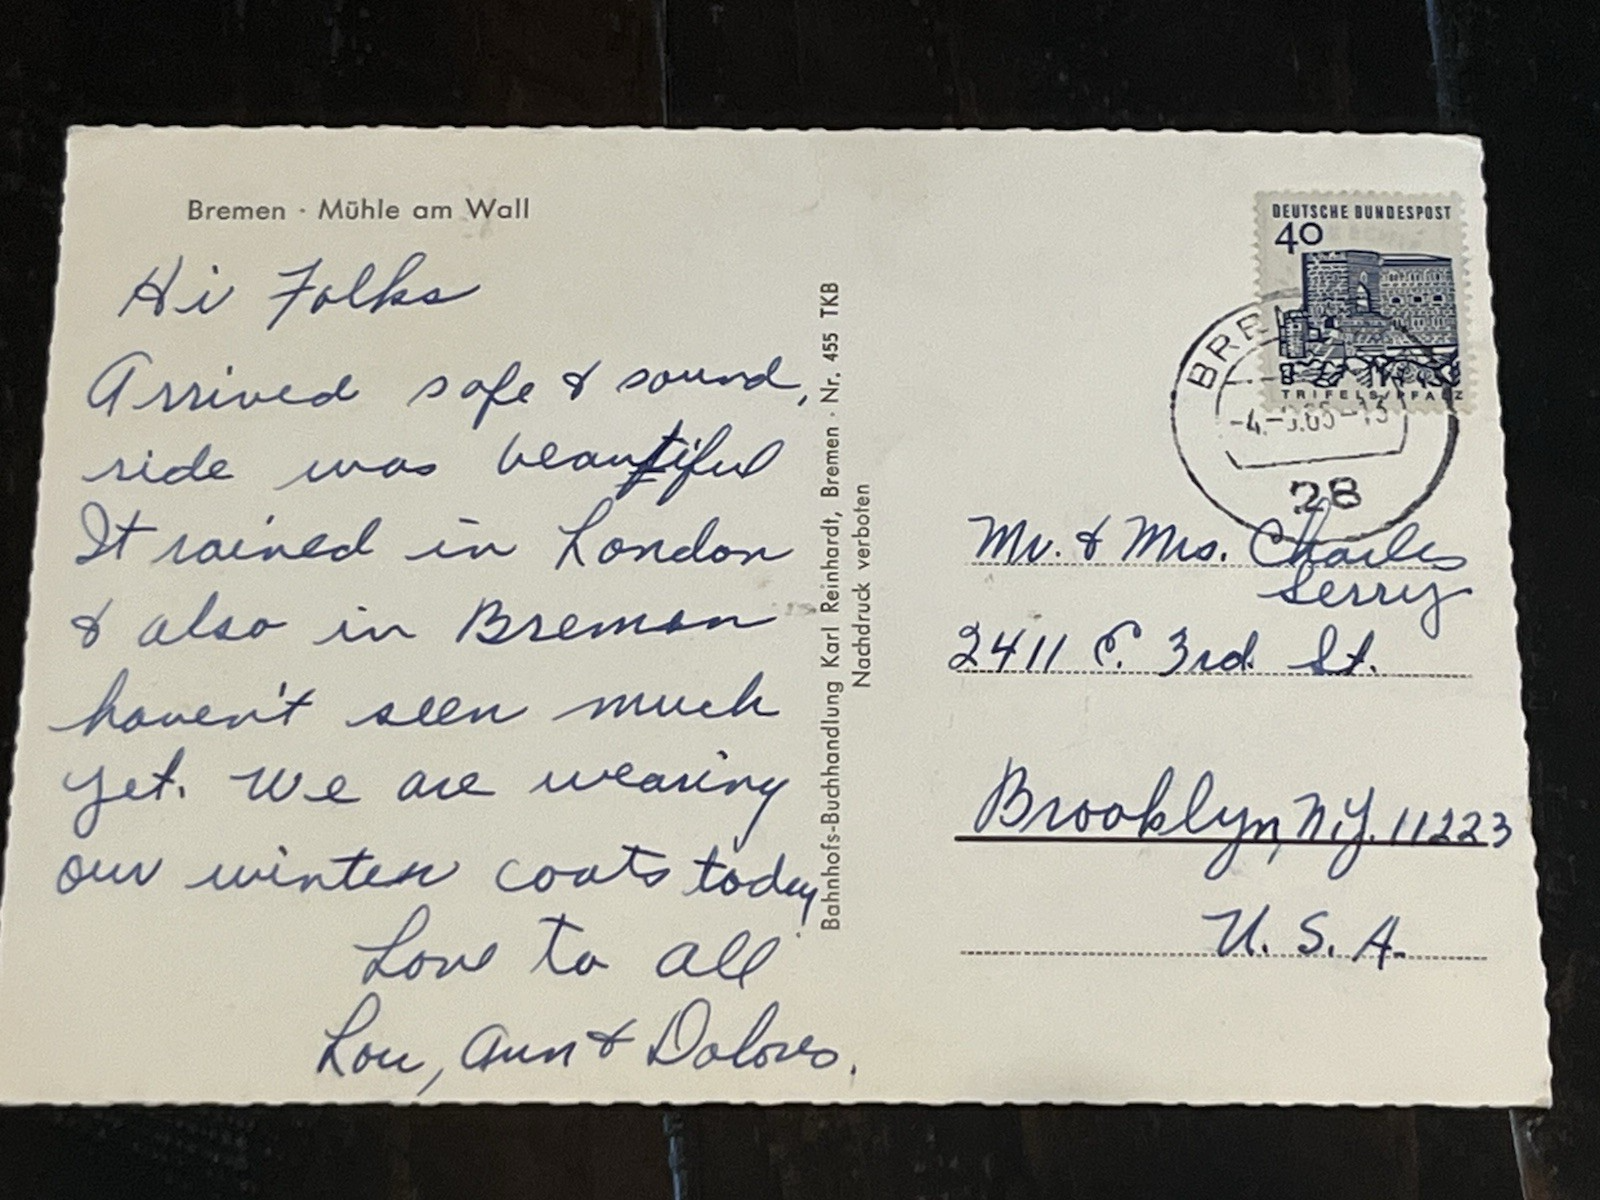 Bremen · Mühle am Wall
Hi Folks
Arrived safe & sound,
ride was beautiful
It rained in London
& also in Bremen
haven't seen much
yet. We are wearing
our winter coats today
Love to all
Lou, Ann & Dolores.
Bahnhofs-Buchhandlung Karl Reinhardt, Bremen · Nr. 455 TKB
Nachdruck verboten
DEUTSCHE BUNDESPOST
40
TRIFELS/PFALZ
28
Mr. & Mrs. Charles
Serry
2411 E. 3rd. St.
Brooklyn, N.Y. 11223
U. S. A.